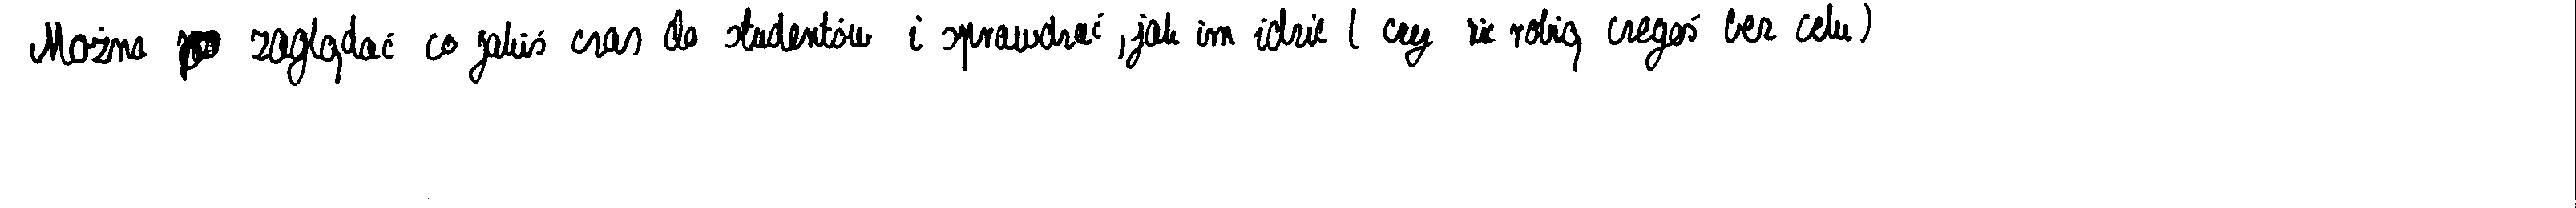 Można zaglądać co jakiś czas do studentów i sprawdzać, jak im idzie (czy nie robią czegoś bez celu)